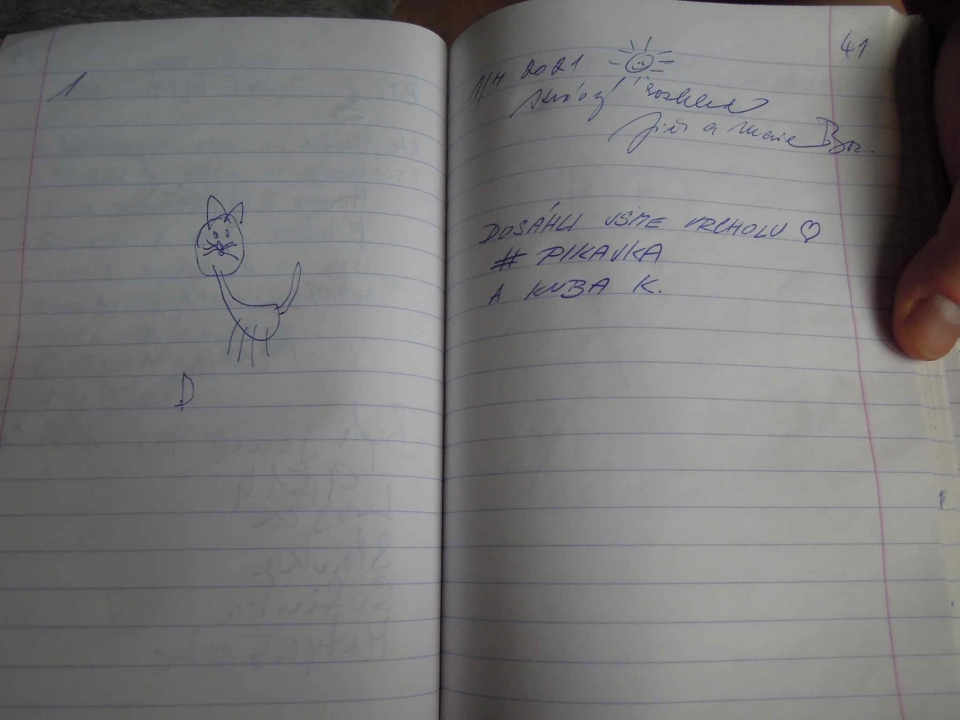 1
D
41
1/4 2021
rozhled
Jiří a Marie
DOSÁHLI JSME VRCHOLU ♡
# PIKAVKA
A KUBA K.